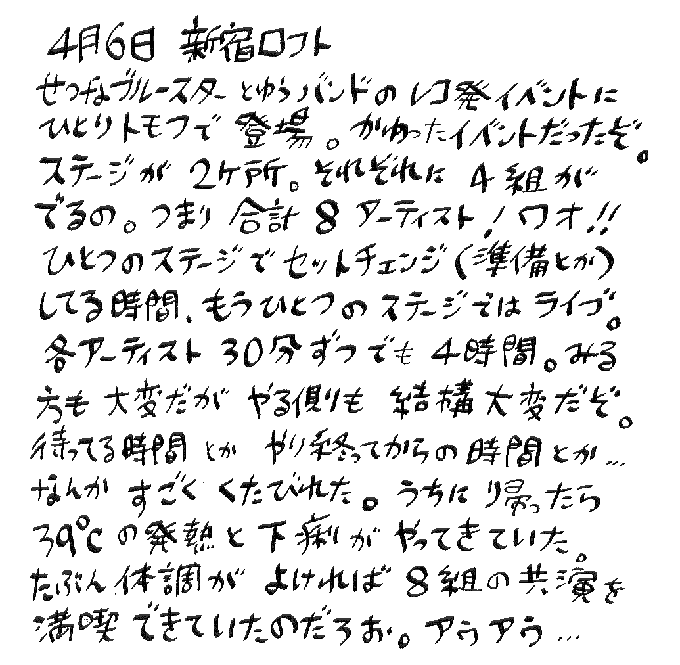 4月6日 新宿ロフト
せつなブルースターとゆうバンドのレコ発イベントに
ひとりトモフで登場。かわったイベントだったぞ。
ステージが2ケ所。それぞれに4組が
でるの。つまり合計8アーティスト!ワオ!!
ひとつのステージでセットチェンジ(準備とか)
してる時間、もうひとつのステージではライブ。
各アーティスト30分ずつでも4時間。みる
方も大変だがやる側も結構大変だぞ。
待ってる時間とかやり終ってからの時間とか…
なんかすごくくたびれた。うちに帰ったら
39℃の発熱と下痢がやってきていた。
たぶん体調がよければ8組の共演を
満喫できていたのだろお。アゥアゥ…